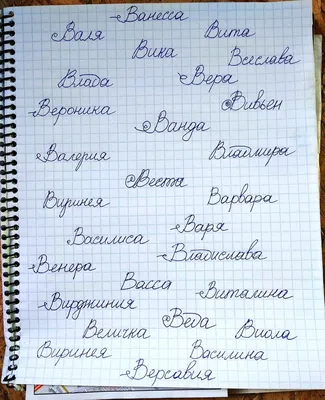 Ванесса
Валя Вита
Вика Всеслава
Влада Вера
Вероника Вивьен
Ванда
Валерия Владмира
Веста
Виринея Варвара
Варя
Василиса
Владислава
Венера
Васса
Вирджиния Виталина
Веда
Величка Виола
Виринея Василина
Версавия